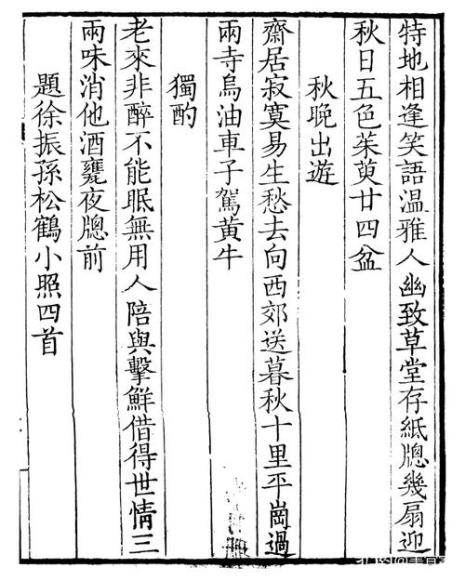 特地相逢笑語溫雅人幽致草堂存紙牕幾扇迎
秋日五色茱萸廿四盆
秋晚出遊
齋居寂寞易生愁去向西郊送暮秋十里平崗過
兩寺烏油車子駕黃牛
獨酌
老來非醉不能眠無用人陪與擊鮮借得世情三
兩味消他酒甕夜牕前
題徐振孫松鶴小照四首